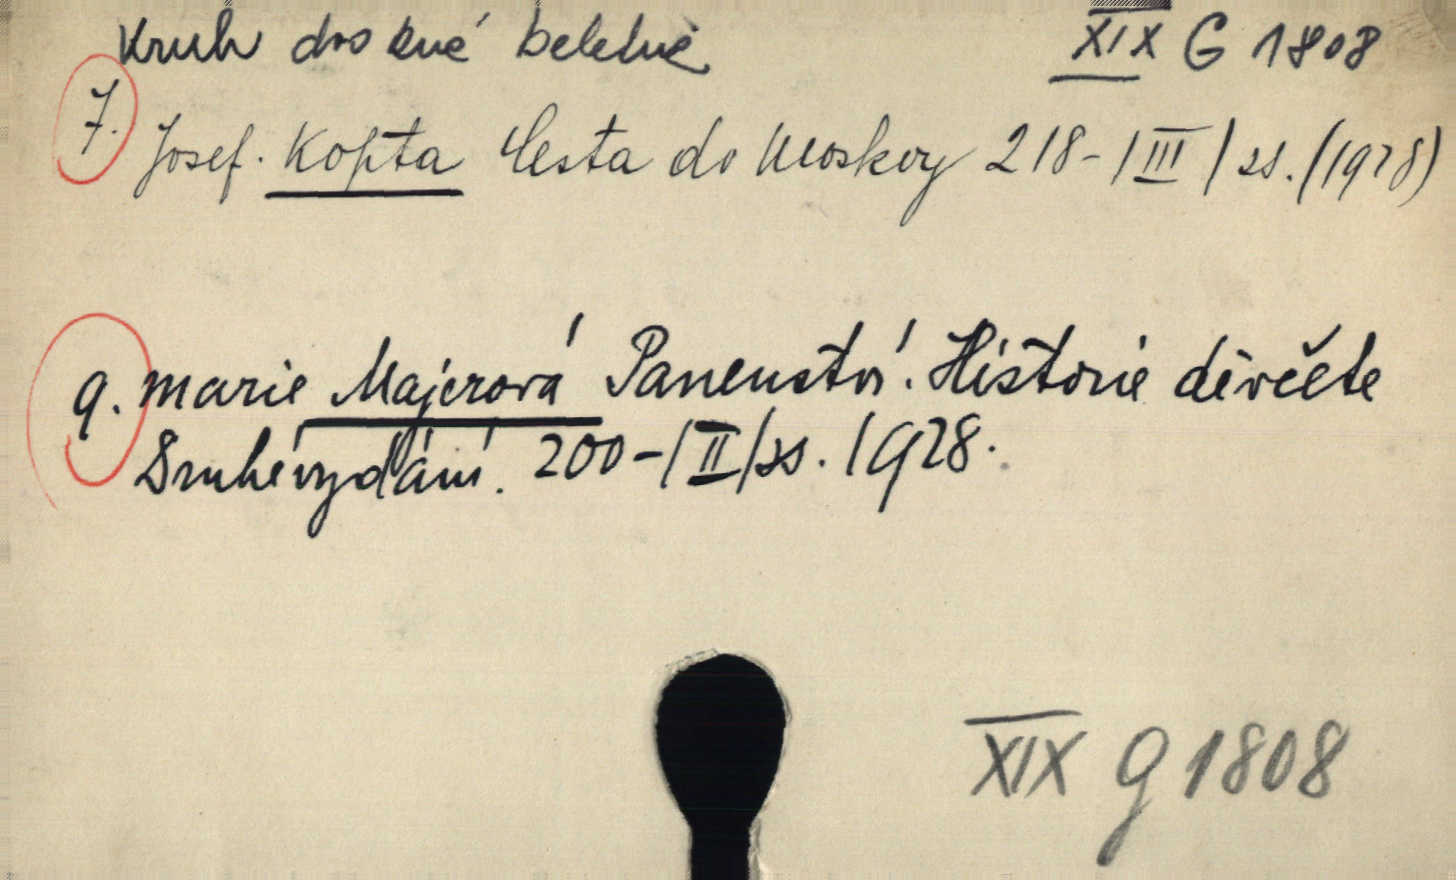 Kruh doskné beletrie XIX G 1808
7. Josef. Kopta Cesta do Moskvy 218-/III/ ss. (1928)
9. Marie Majerová Panenství. Historie děvčete
Druhé vydání. 200-/II/ss. 1928.
XIX G 1808